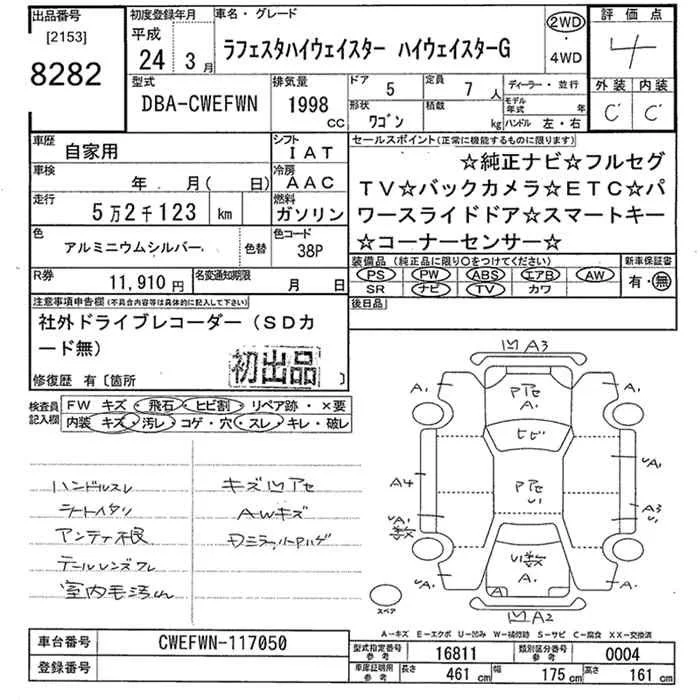 出品番号 初度登録年月 車名・グレード 2WD 評価点
[2153] 平成 ラフェスタハイウェイスター ハイウェイスターG ・ 4
8282 24年 3月 4WD
型式 排気量 ドア 5 定員 7人 ディーラー・並行 外装 内装
DBA-CWEFWN 1998 CC 形状 ワゴン 積載 kg モデル年式 年 C' C'
ハンドル 左・右
車歴 自家用 シフト IAT セールスポイント(正常に機能するものに限ります)
車検 年 月( 日) 冷房 AAC ☆純正ナビ☆フルセグ
走行 5万2千123 km 燃料 ガソリン TV☆バックカメラ☆ETC☆パ
色 アルミニウムシルバー 色替 色コード 38P ワースライドドア☆スマートキー
☆コーナーセンサー☆
R券 11,910円 名変通知期限 月 日 装備品(純正品に限り○をつけてください) 新車保証書
PS PW ABS エアB AW 有・無
SR ナビ TV カワ
注意事項申告欄(不具合内容等は具体的に記入して下さい) 後日品
社外ドライブレコーダー(SDカ
ード無)
初出品
修復歴 有〔箇所 〕
検査員記入欄 FW キズ・飛石・ヒビ割・リペア跡・×要
内装 キズ・汚レ・コゲ・穴・スレ・キレ・破レ
ハンドルスレ キズ凹アセ
シートヘタリ AWキズ
アンテナ不良 ドミラーハゲ
テールレンズワレ
室内毛汚れ
凹 A3
A1 アアセ A1
A1
ヒビ
A4 アアセ U1 UA1
A3 U1
UA1 U1
UA1 A1 UA1
凹 A2
スペア
A-キズ E-エクボ U-凹み W-補修跡 S-サビ C-腐食 XX-交換済
車台番号 CWEFWN-117050 型式指定番号 参考 16811 類別区分番号 参考 0004
登録番号 車庫証明用 参考 長さ 461 cm 幅 175 cm 高さ 161 cm